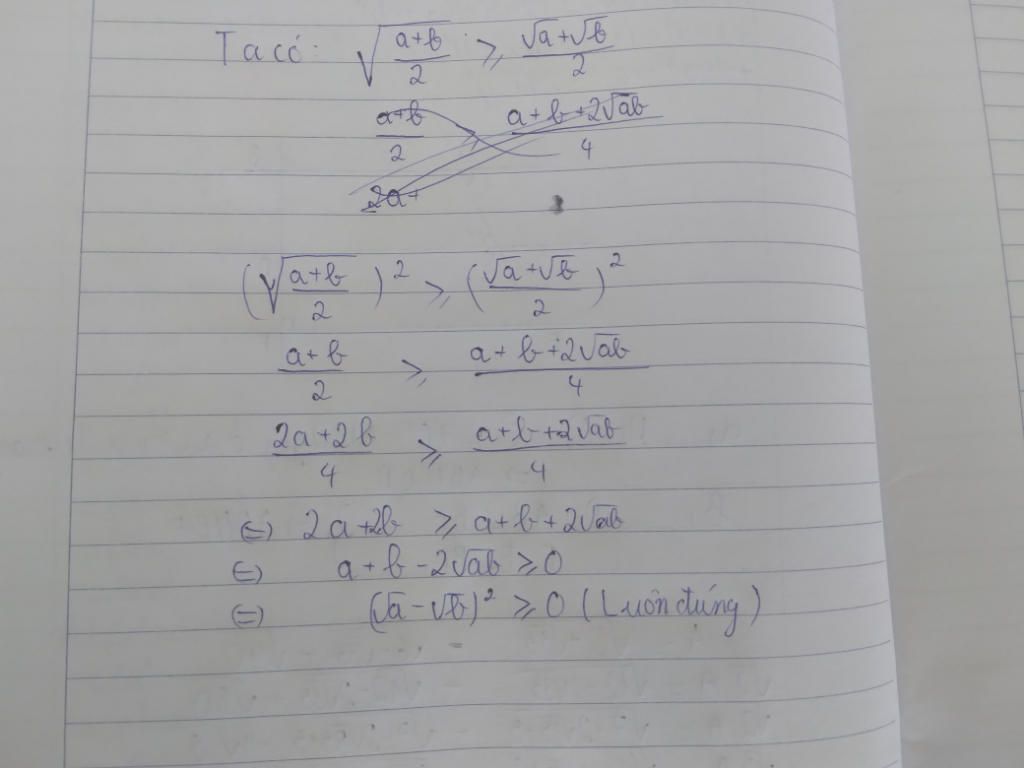 Ta có: √((a+b)/2) ≥ (√a+√b)/2
(a+b)/2 > (a+b+2√ab)/4
2a+
(√((a+b)/2))² ≥ ((√a+√b)/2)²
(a+b)/2 ≥ (a+b+2√ab)/4
(2a+2b)/4 ≥ (a+b+2√ab)/4
⇔ 2a+2b ≥ a+b+2√ab
⇔ a+b-2√ab ≥ 0
⇔ (√a-√b)² ≥ 0 (Luôn đúng)